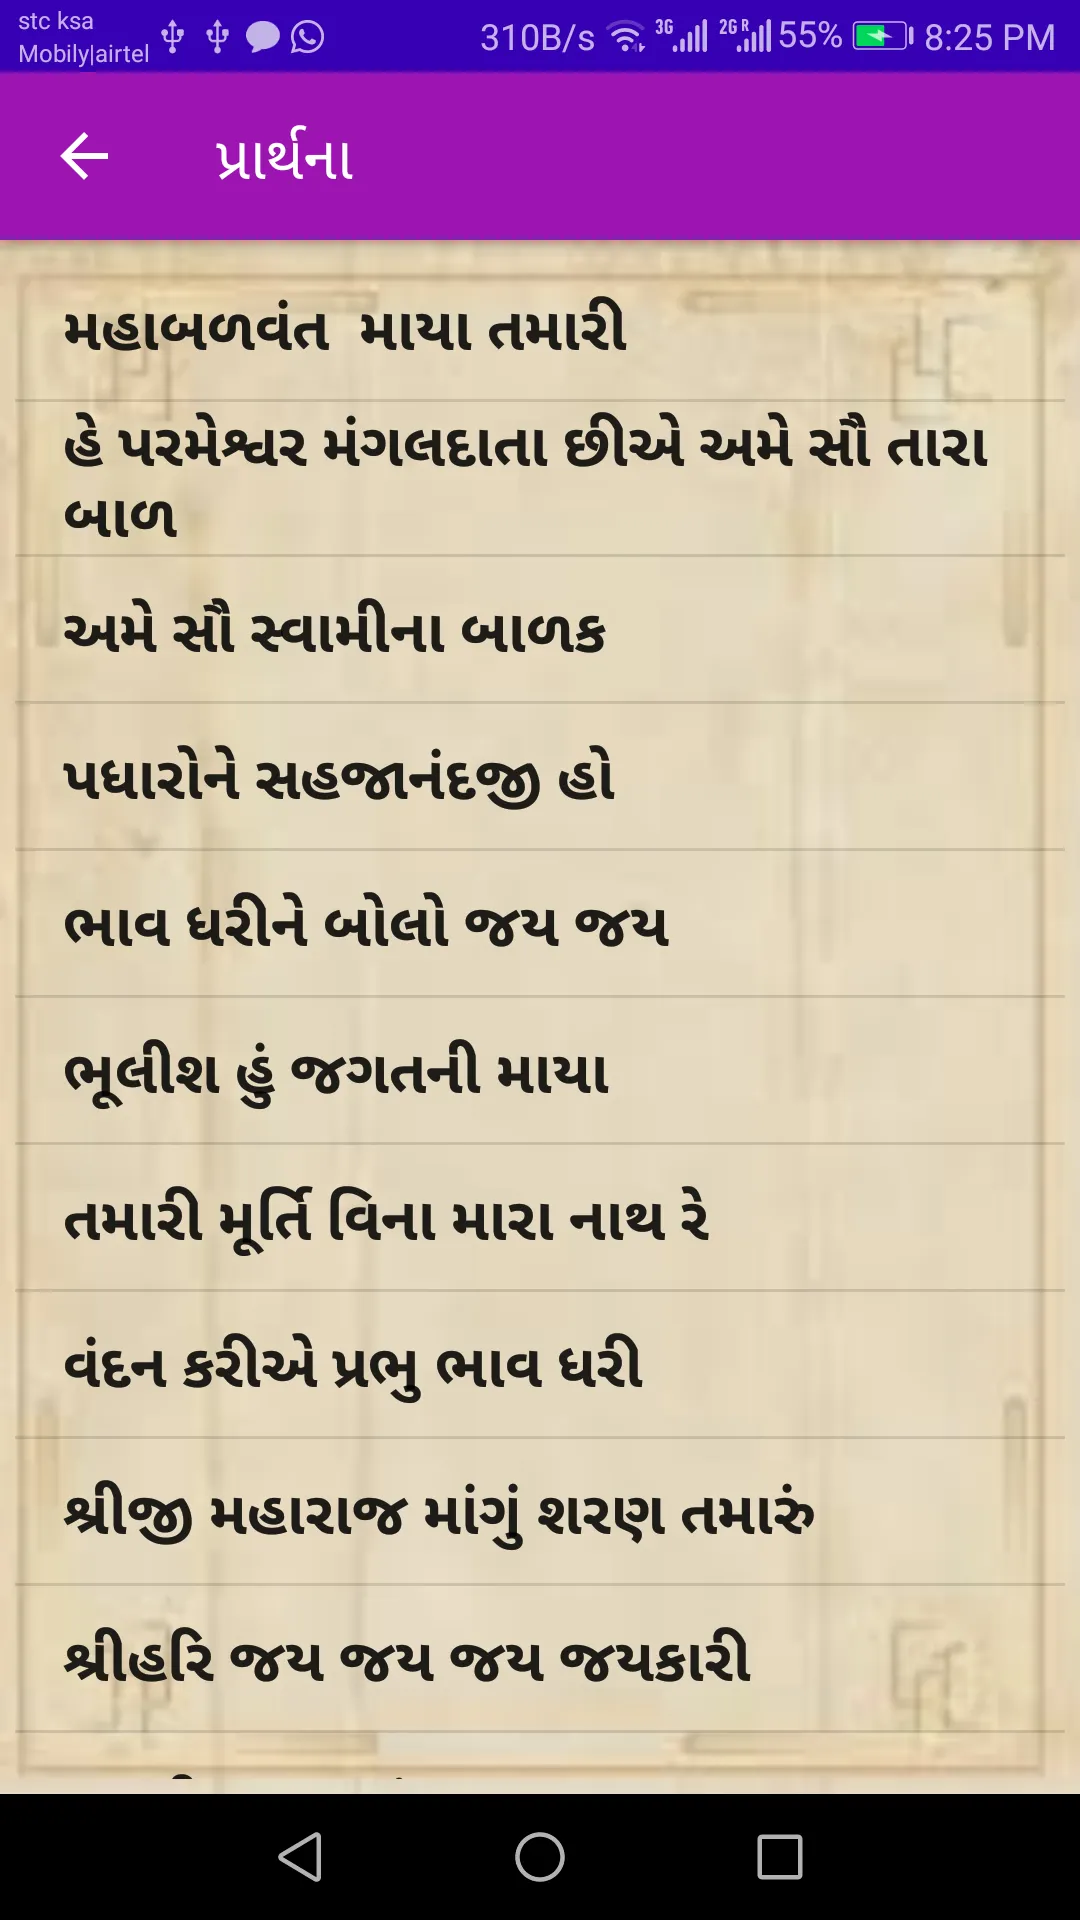 stc ksa
Mobily|airtel
310B/s 3G 2G R 55% 8:25 PM
પ્રાર્થના
મહાબળવંત માયા તમારી
હે પરમેશ્વર મંગલદાતા છીએ અમે સૌ તારા
બાળ
અમે સૌ સ્વામીના બાળક
પધારોને સહજાનંદજી હો
ભાવ ધરીને બોલો જય જય
ભૂલીશ હું જગતની માયા
તમારી મૂર્તિ વિના મારા નાથ રે
વંદન કરીએ પ્રભુ ભાવ ધરી
શ્રીજી મહારાજ માંગું શરણ તમારું
શ્રીહરિ જય જય જય જયકારી